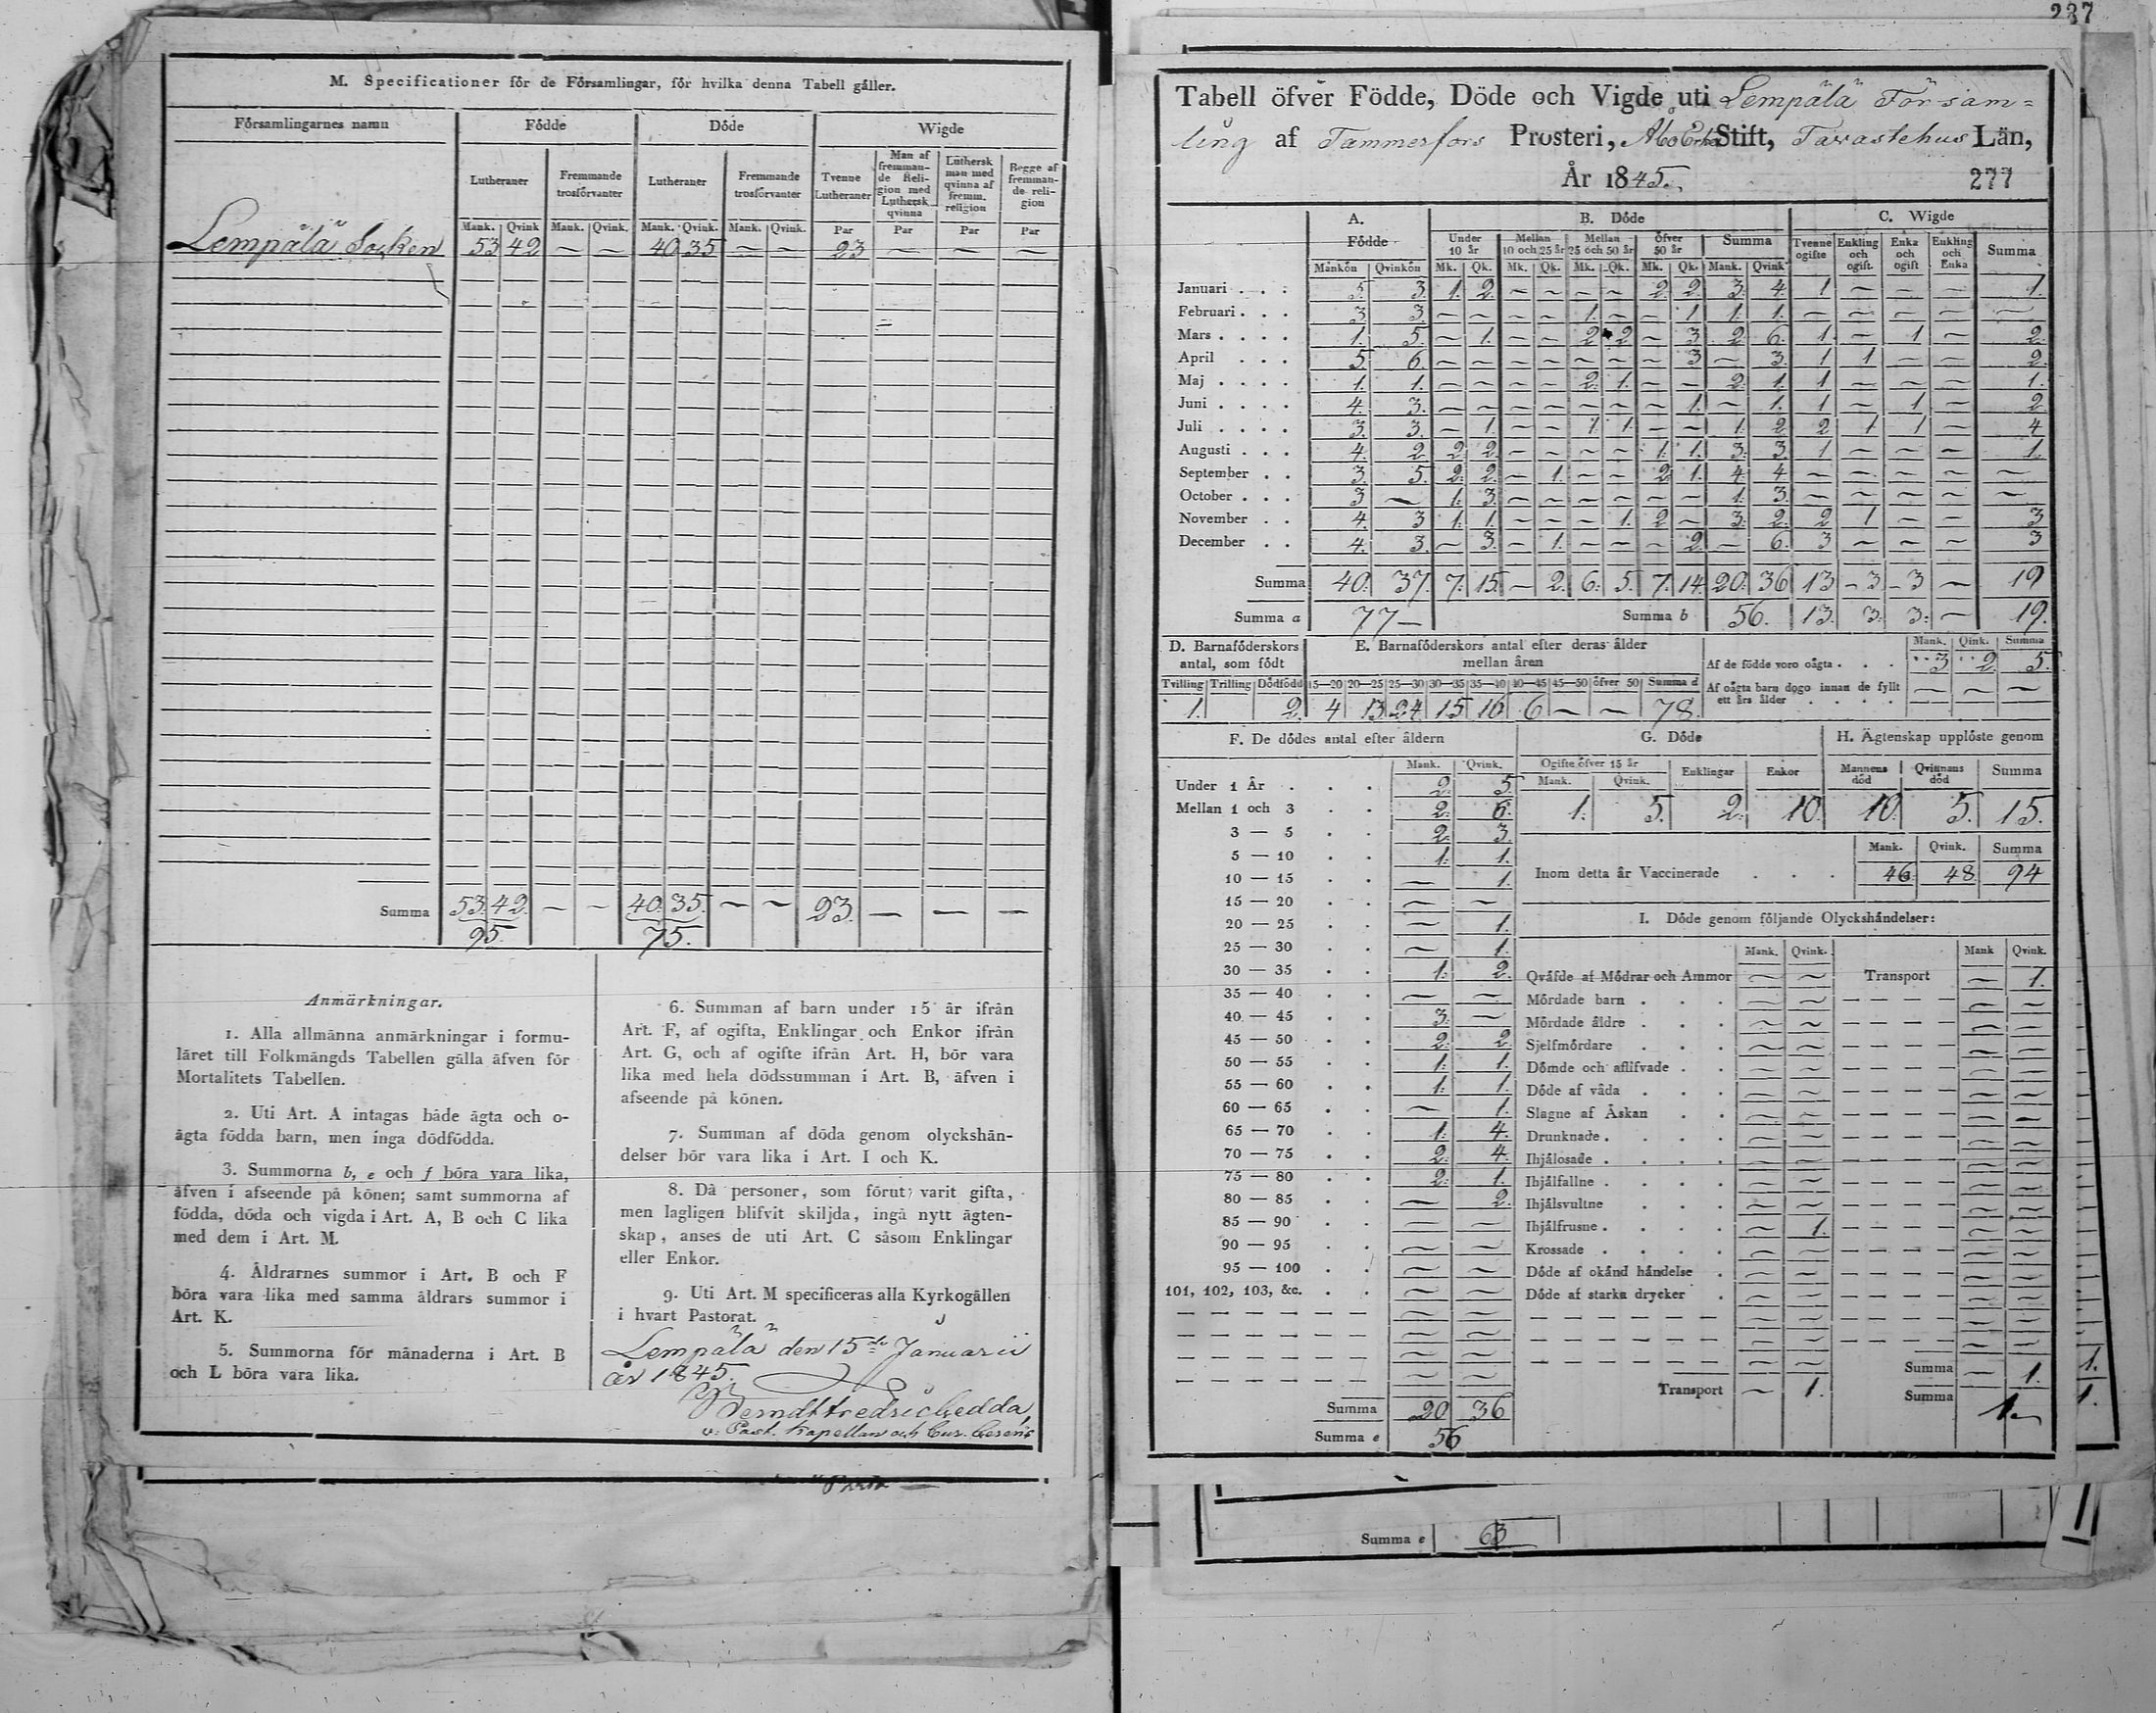 M. Specificationer för de Församlingar, för hvilka denna Tabell gäller.
Församlingarnes namn Födde Döde Wigde
Lutheraner Fremmande trosförvanter Lutheraner Fremmande trosförvanter Tvenne Lutheraner Man af fremmande Religion med Luthersk qvinna Luthersk man med qvinna af fremm. religion Begge af fremmande religion
Mank. Qvink Mank. Qvink. Mank. Qvink. Mank. Qvink. Par Par Par Par
Lempälä Socken 53 42 — — 40 35 — — 23 — — —
Summa 53. 42. — — 40. 35. — — 23. — — —
95. 75.
Anmärkningar.
1. Alla allmänna anmärkningar i formu-
läret till Folkmängds Tabellen gälla äfven för
Mortalitets Tabellen.
2. Uti Art. A intagas både ägta och o-
ägta födda barn, men inga dödfödda.
3. Summorna b, e och f böra vara lika,
äfven i afseende på könen; samt summorna af
födda, döda och vigda i Art. A, B och C lika
med dem i Art. M.
4. Åldrarnes summor i Art. B och F
böra vara lika med samma åldrars summor i
Art. K.
5. Summorna för månaderna i Art. B
och L böra vara lika.
6. Summan af barn under 15 år ifrån
Art. F, af ogifta, Enklingar och Enkor ifrån
Art. G, och af ogifte ifrån Art. H, bör vara
lika med hela dödssumman i Art. B, äfven i
afseende på könen.
7. Summan af döda genom olyckshän-
delser bör vara lika i Art. I och K.
8. Då personer, som förut varit gifta,
men lagligen blifvit skiljda, ingå nytt ägten-
skap, anses de uti Art. C såsom Enklingar
eller Enkor.
9. Uti Art. M specificeras alla Kyrkogällen
i hvart Pastorat.
Lempälä den 15de Januarii
år 1845.
v: Past. Kapellan och
237
Tabell öfver Födde, Döde och Vigde uti Lempälä Försam=
ling af Tammerfors Prosteri, Åbo Erke Stift, Tavastehus Län,
År 1845. 277
A. B. Döde C. Wigde
Födde Under 10 år Mellan 10 och 25 år Mellan 25 och 50 år Öfver 50 år Summa Tvenne ogifte Enkling och ogift. Enka och ogift Enkling och Enka Summa
Mankön Qvinkön Mk. Qk. Mk. Qk. Mk. Qk. Mk. Qk. Mank. Qvink
Januari . . . 5. 3. 1. 2. — — — — 2. 2. 3. 4. 1 — — — 1.
Februari . . . 3 3. — — — — 1. — — 1 1. 1. — — — — —
Mars . . . . 1. 5. — 1. — — 2 2 — 3 2 6. 1 — 1 — 2.
April . . . 5. 6. — — — — — — — 3 — 3. 1 1 — — 2.
Maj . . . . 1. 1. — — — — 2. 1. — — 2. 1. 1 — — — 1.
Juni . . . . 4. 3. — — — — — — — 1. — 1. 1 — 1 — 2
Juli . . . . 3. 3. — 1. — — 1 1. — — 1. 2 2 1 1 — 4
Augusti . . . 4. 2 2 2. — — — — 1. 1. 3. 3. 1 — — — 1.
September . . 3. 5. 2. 2. — 1. — — 2 1. 4. 4 — — — — —
October . . . 3 — 1. 3. — — — — — — 1. 3. — — — — —
November . . 4. 3 1. 1. — — — 1. 2 — 3. 2. 2 1 — — 3
December . . 4. 3. — 3. — 1. — — — 2. — 6. 3 — — — 3
Summa 40. 37. 7. 15. — 2. 6. 5. 7. 14. 20. 36 13 3 3 — 19
Summa a 77— Summa b 56. 13. 3. 3. — 19.
D. Barnaföderskors antal, som födt
Tvilling Trilling Dödfödd
1. 2.
E. Barnaföderskors antal efter deras ålder mellan åren
15—20 20—25 25—30 30—35 35—40 40—45 45—50 öfver 50 Summa d
4 13 24 15 16 6 — — 78.
Mank. Qink. Summa
Af de födde voro oägta . . . 3 2 5.
Af oägta barn dogo innan de fyllt
ett års ålder . . . . — — —
F. De dödes antal efter åldern
Mank. Qvink.
Under 1 År . . . 2. 5
Mellan 1 och 3 . . 2. 6.
3 — 5 . . 2. 3.
5 — 10 . . 1. 1.
10 — 15 . . — 1.
15 — 20 . . — —
20 — 25 . . — 1.
25 — 30 . . — 1.
30 — 35 . . 1. 2.
35 — 40 . . — —
40 — 45 . . 3. —
45 — 50 . . 2. 2
50 — 55 . . 1. 1.
55 — 60 . . 1. 1.
60 — 65 . . — 1.
65 — 70 . . 1. 4.
70 — 75 . . 2. 4.
75 — 80 . . 2. 1.
80 — 85 . . — 2.
85 — 90 . . — —
90 — 95 . . — —
95 — 100 . . — —
101, 102, 103, &c. . . — —
Summa 20 36
Summa e 56
G. Döde
Ogifte öfver 15 år Enklingar Enkor
Mank. Qvink.
1. 5. 2. 10.
H. Ägtenskap upplöste genom
Mannens död Qvinnans död Summa
10. 5. 15.
Mank. Qvink. Summa
Inom detta år Vaccinerade . . . 46. 48. 94
I. Döde genom följande Olyckshändelser:
Mank. Qvink. Mank Qvink.
Qväfde af Mödrar och Ammor — — Transport — 1.
Mördade barn . . . — —
Mördade äldre . . . — —
Sjelfmördare . . — —
Dömde och aflifvade . . — —
Döde af våda . . . — —
Slagne af Åskan . . — —
Drunknade . . . . — —
Ihjälosade . . . . — —
Ihjälfallne . . . . — —
Ihjälsvultne . . . — —
Ihjälfrusne . . . . — 1.
Krossade . . . . — —
Döde af okänd händelse . — —
Döde af starka drycker . — —
Summa — 1.
Transport — 1. Summa 1.
1.
1.
Summa e 63